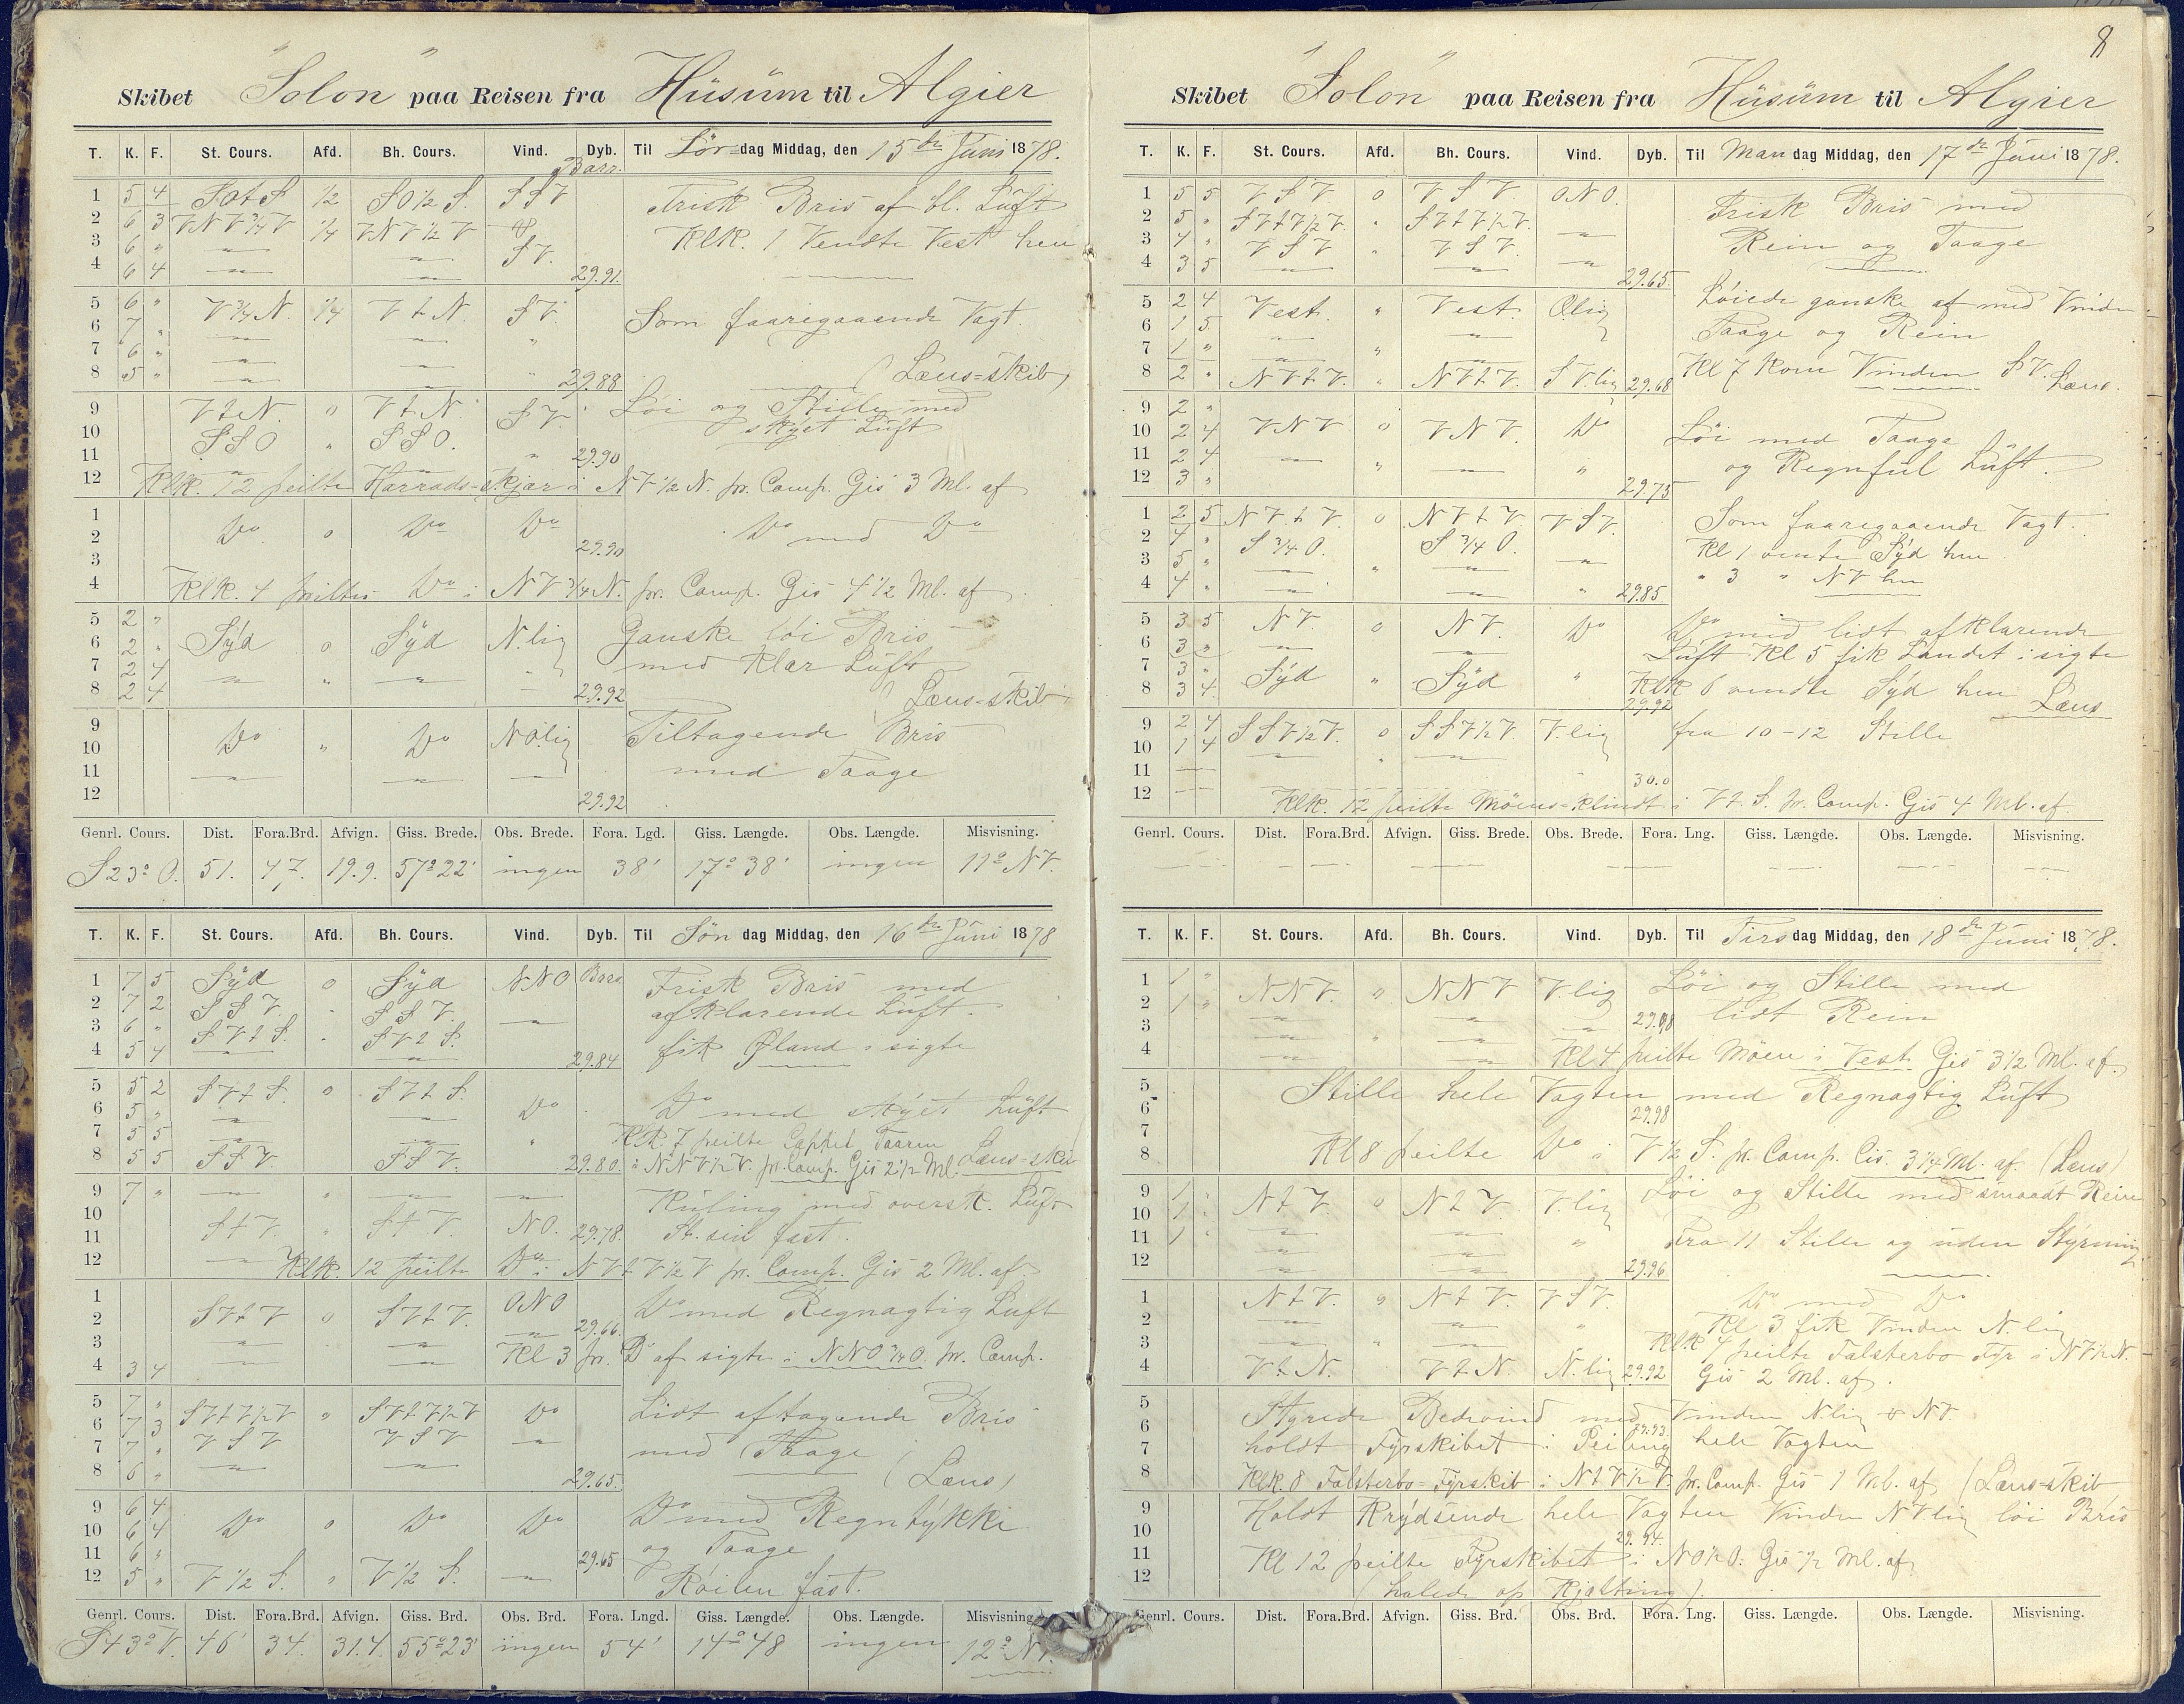 8
Skibet "Solon" paa Reisen fra Hüsüm til Algier
T. K. F. St. Cours. Afd. Bh. Cours. Vind. Dyb. Til Lördag Middag, den 15de Juni 1878.
Barr.
1 5 4 SOtS 1/2 SO 1/2 S. SSV Frisk Bris af bl. Lüft
2 6 3 VNV 3/4 V 1/4 VNV 1/2 V Klk. 1 Vendte Vest hen
3 6 " — — SV.
4 6 4 — — 29.91.
5 6 " V 3/4 N. 1/4 V t N. SV. Som faaregaaende Vagt.
6 7 " — — "
7 6 " — —
8 5 " — — " 29.88 (Læns=skib)
9 VtN. o VtN. SV. Löi og Stille med
10 SSO " SSO. skyet Lüft
11 — — " 29.90
12 Klk. 12 peilte Harrads-skjær i NV 1/2 N. pr. Comp. Gis 3 Ml. af
1 Do o Do Do Do med Do
2 29.90
3
4 Klk. 4 peiltes Do i NV 3/4 N. pr. Comp. Gis 4 1/2 Ml. af
5 2 "
6 2 " Syd o Syd N.lig Ganske löi Bris
7 2 4 — " — med klar Lüft
8 2 4 — 29.92 (Læns-skib
9 Do " Do NO.lig Tiltagende Bris
10
11 — — — med Taage
12 29.92
Genrl. Cours. Dist. Fora.Brd. Afvign. Giss. Brede. Obs. Brede. Fora. Lgd. Giss. Længde. Obs. Længde. Misvisning.
S 23° O. 51. 47. 19.9. 57° 22' ingen 38' 17° 38' ingen 11° NV.
T. K. F. St. Cours. Afd. Bh. Cours. Vind. Dyb. Til Søndag Middag, den 16de Juni 1878
1 7 5 Syd o Syd NNO Barr. Frisk Bris med
2 7 2 SSV " SSV. — afklarende Lüft.
3 6 " SVtS. " SVtS.
4 5 4 — — 29.84 fik Øland i sigte
5 5 2 SVtS. o SVtS.
6 5 " — — Do Do med skyet Lüft
7 5 5 — — " Klk. 7 peilte Cappel Taaren
8 5 5 SSV. SSV. 29.80. i NNV 1/2 V. pr. Comp. Gis 2 1/2 Ml. Læns-skib
9 7 " — " — — Küling med oversk. Lüft
10
11 StV. " StV. NO. 29.78. St. seil fast.
12 — Klk. 12 peilte Do i NVtV 1/2 V pr. Comp. Gis 2 Ml. af.
1 SVtV o SVtV. ONO Do med Regnagtig Lüft
2 — 29.66.
3 — — Kl 3 pr. D af sigte i NNO 3/4 O. pr. Comp.
4 3 4 — —
5 7 " SVtV 1/2 V " SVtV 1/2 V Do Lidt aftagende Bris
6 7 3 VSV VSV —
7 7 " — — med Taage
8 6 " 29.65. (Læns)
9 6 4 Do o Do Do Do med Regntykke
10 6 4
11 6 " 29.65 og Taage
12 5 " V 1/2 S. " V 1/2 S. — Röilen fast.
Genrl. Cours. Dist. Fora.Brd. Afvign. Giss. Brd. Obs. Brd. Fora. Lngd. Giss. Længde. Obs. Længde. Misvisning
S 43° V. 46' 34. 31.4. 55° 23' ingen 54' 14° 48 ingen 12° NV.
Skibet "Solon" paa Reisen fra Hüsüm til Algier
T. K. F. St. Cours. Afd. Bh. Cours. Vind. Dyb. Til Mandag Middag, den 17de Juni 1878.
1 5 5 VSV o VSV. ONO. Frisk Bris med
2 5 " SVtV 1/2 V. " SVtV 1/2 V. —
3 4 " VSV " VSV. Rein og Taage
4 3 5 — — — 29.65.
5 2 4 Vest. " Vest. Ølig Löiede ganske af med Vinden
6 1 5 — — Taage og Rein
7 1 " — " —
8 2 " NVtV. " NVtV. SV.lig 29.68 Kl 7 kom Vinden SV. Læns.
9 2 "
10 2 4 VNV o VNV. Do Löi med Taage
11 2 4 — " — " og Regnfül Lüft.
12 3 " 29.75
1 2 5 NVtV. o NVtV. VSV. Som faaregaaende Vagt.
2 4 " S 3/4 O. S 3/4 O. Kl 1 vente Syd hen
3 5 " — " — — " 3 " NV hen
4 4 " — — " 29.85
5 3 5 NV o NV. Do Do med lidt afklarende
6 3 " — — Lüft Kl 5 fik Landet i sigte
7 3 " Syd " Syd " Klk 6 vendte Syd hen
8 3 4. 29.92 Læns
9 2 4 SSV 1/2 V. o SSV 1/2 V. V.lig fra 10-12 Stille
10 1 4 — " —
11 — 30.0
12 — Klk. 12 peilte Möens-klindt i Vt.S. pr. Comp. Gis 4 Ml. af.
Genrl. Cours. Dist. Fora.Brd. Afvign. Giss. Brede. Obs. Brede. Fora. Lng. Giss. Længde. Obs. Længde. Misvisning.
T. K. F. St. Cours. Afd. Bh. Cours. Vind. Dyb. Til Tirsdag Middag, den 18de Juni 1878.
1 1 " Löi og Stille med
2 1 " NNV. " NNV V.lig
3 — — — 29.98 lidt Rein
4 — — Kl 4 peilte Möen i Vest Gis 3 1/2 Ml. af.
5 Stille hele Vagten med Regnagtig Lüft
6 29.98
7
8 Kl 8 peilte Do i V 1/2 S. pr. Comp. Cis. 3 1/4 Ml. af. (Læns)
9 1 " NtV. o NtV. V.lig Löi og Stille med smaadt Rein
10 1 " — —
11 1 " — — " Fra 11 Stille og uden Styrning
12 — — 29.96
1 NtV. " NtV. VSV. Do med Do
2 — — " Kl 3 fik Vinden N.lig
3 — " — Klk 4 peilte Falsterbo Fyr i NV 1/2 N.
4 VtN. VtN. N.lig 29.92 Gis 2 Ml. af.
5 Styrede Bedevind med Vinden N.lig & NV.
6 29.93.
7 holdt Fyrskibet i Peiling hele Vagten
8 Klk. 8 Falsterbo-Fyrskib i NtV 1/2 V. pr. Comp. Gis 1 Ml. af (Læns-skib
9 Holdt Krydsende hele Vagten Vinden NV.lig löi Bris
10 29.94.
11 Kl 12 peilte Fyrskibet i NO 1/2 O. Gis 1/2 Ml. af
12 (halede op Kjætting).
Genrl. Cours. Dist. Fora.Brd. Afvign. Giss. Brd. Obs. Brd. Fora. Lng. Giss. Længde. Obs. Længde. Misvisning.